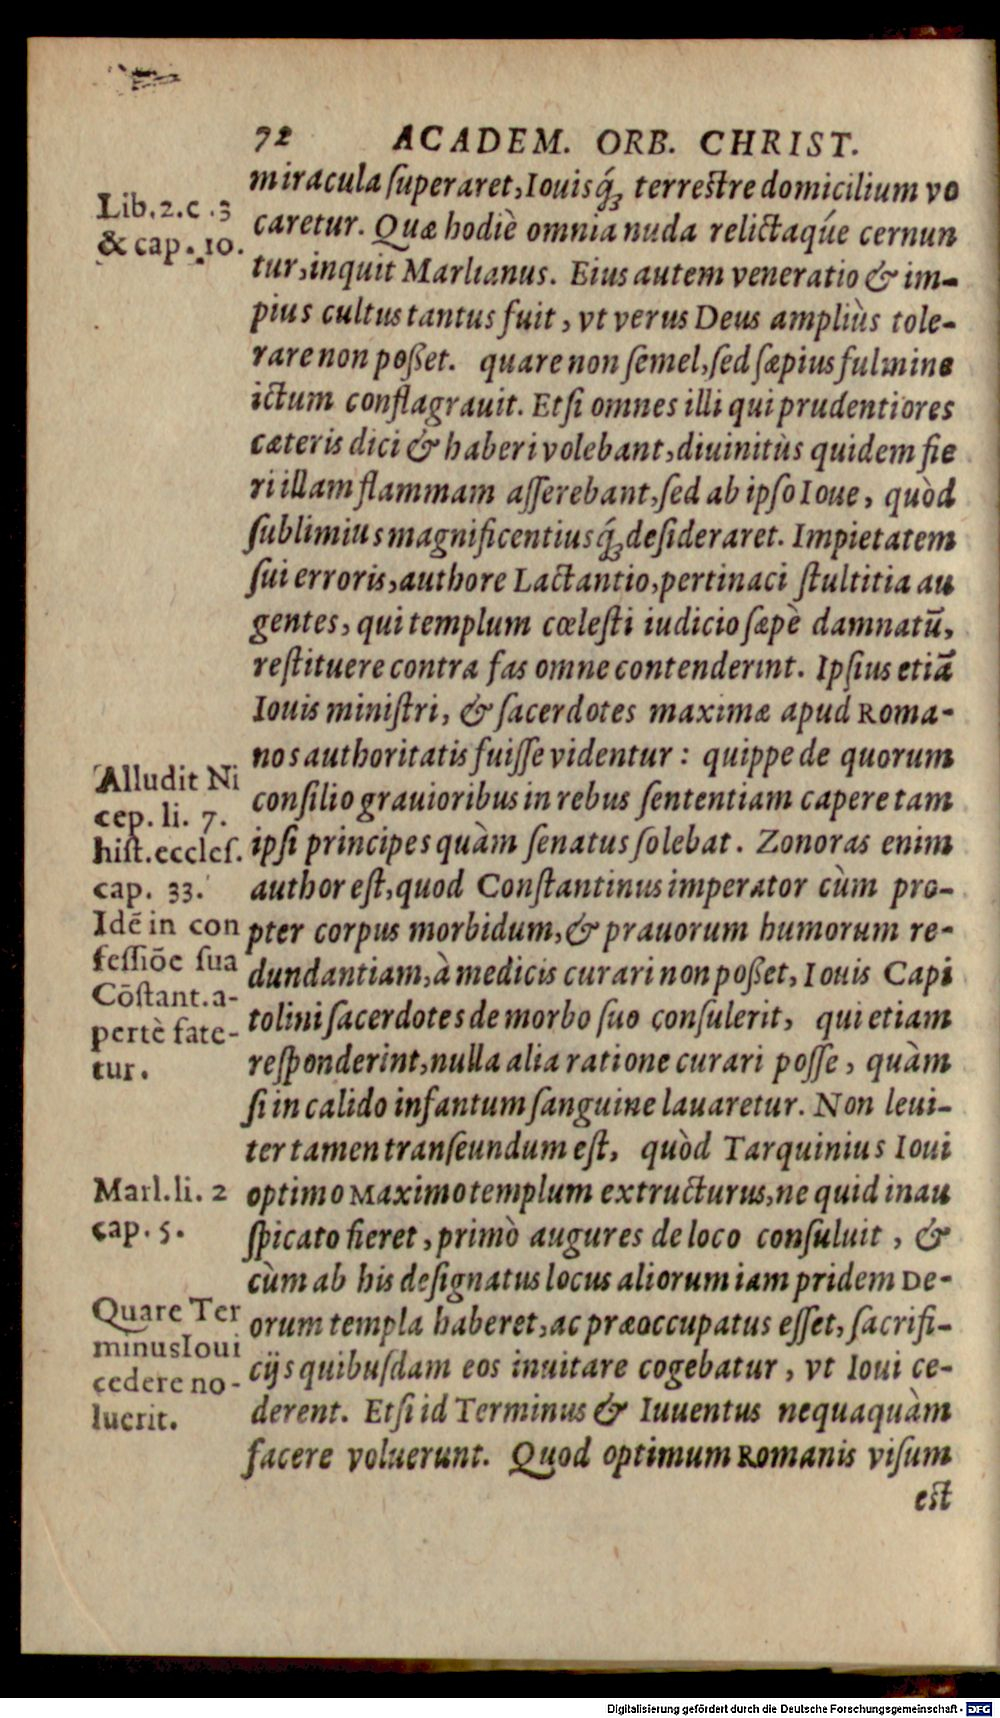 72 ACADEM. ORB. CHRIST.
miracula ſuperaret, Iouisq́ꝫ terreſtre domicilium vo
caretur. Quæ hodiè omnia nuda relictaqúe cernun
tur, inquit Marlianus. Eius autem veneratio & im-
pius cultus tantus fuit, vt verus Deus ampliùs tole-
rare non poßet. quare non ſemel, ſed ſæpius fulmine
ictum conflagrauit. Etſi omnes illi qui prudentiores
cæteris dici & haberi volebant, diuinitùs quidem fie
ri illam flammam aſſerebant, ſed ab ipſo Ioue, quòd
ſublimius magnificentiusq́ꝫ deſideraret. Impietatem
ſui erroris, authore Lactantio, pertinaci ſtultitia au
gentes, qui templum cœleſti iudicio ſæpè damnatū,
reſtituere contra fas omne contenderint. Ipſius etiā
Iouis miniſtri, & ſacerdotes maximæ apud Roma-
nos authoritatis fuiſſe videntur: quippe de quorum
conſilio grauioribus in rebus ſententiam capere tam
ipſi principes quàm ſenatus ſolebat. Zonoras enim
author eſt, quod Conſtantinus imperator cùm pro-
pter corpus morbidum, & prauorum humorum re-
dundantiam, à medicis curari non poßet, Iouis Capi
tolini ſacerdotes de morbo ſuo conſulerit, qui etiam
reſponderint, nulla alia ratione curari poſſe, quàm
ſi in calido infantum ſanguine lauaretur. Non leui-
ter tamen tranſeundum eſt, quòd Tarquinius Ioui
optimo Maximo templum extructurus, ne quid inau
ſpicato fieret, primò augures de loco conſuluit, &
cùm ab his deſignatus locus aliorum iam pridem De-
orum templa haberet, ac præoccupatus eſſet, ſacrifi-
cijs quibuſdam eos inuitare cogebatur, vt Ioui ce-
derent. Etſi id Terminus & Iuuentus nequaquàm
facere voluerunt. Quod optimum Romanis viſum
eſt
Lib. 2. c. 3
& cap. 10.
Alludit Ni
cep. li. 7.
hiſt. eccleſ.
cap. 33.
Idē in con
feſſiōe ſua
Cōſtant. a-
pertè fate-
tur.
Marl. li. 2
cap. 5.
Quare Ter
minus Ioui
cedere no-
luerit.
Digitalisierung gefördert durch die Deutsche Forschungsgemeinschaft - DFG